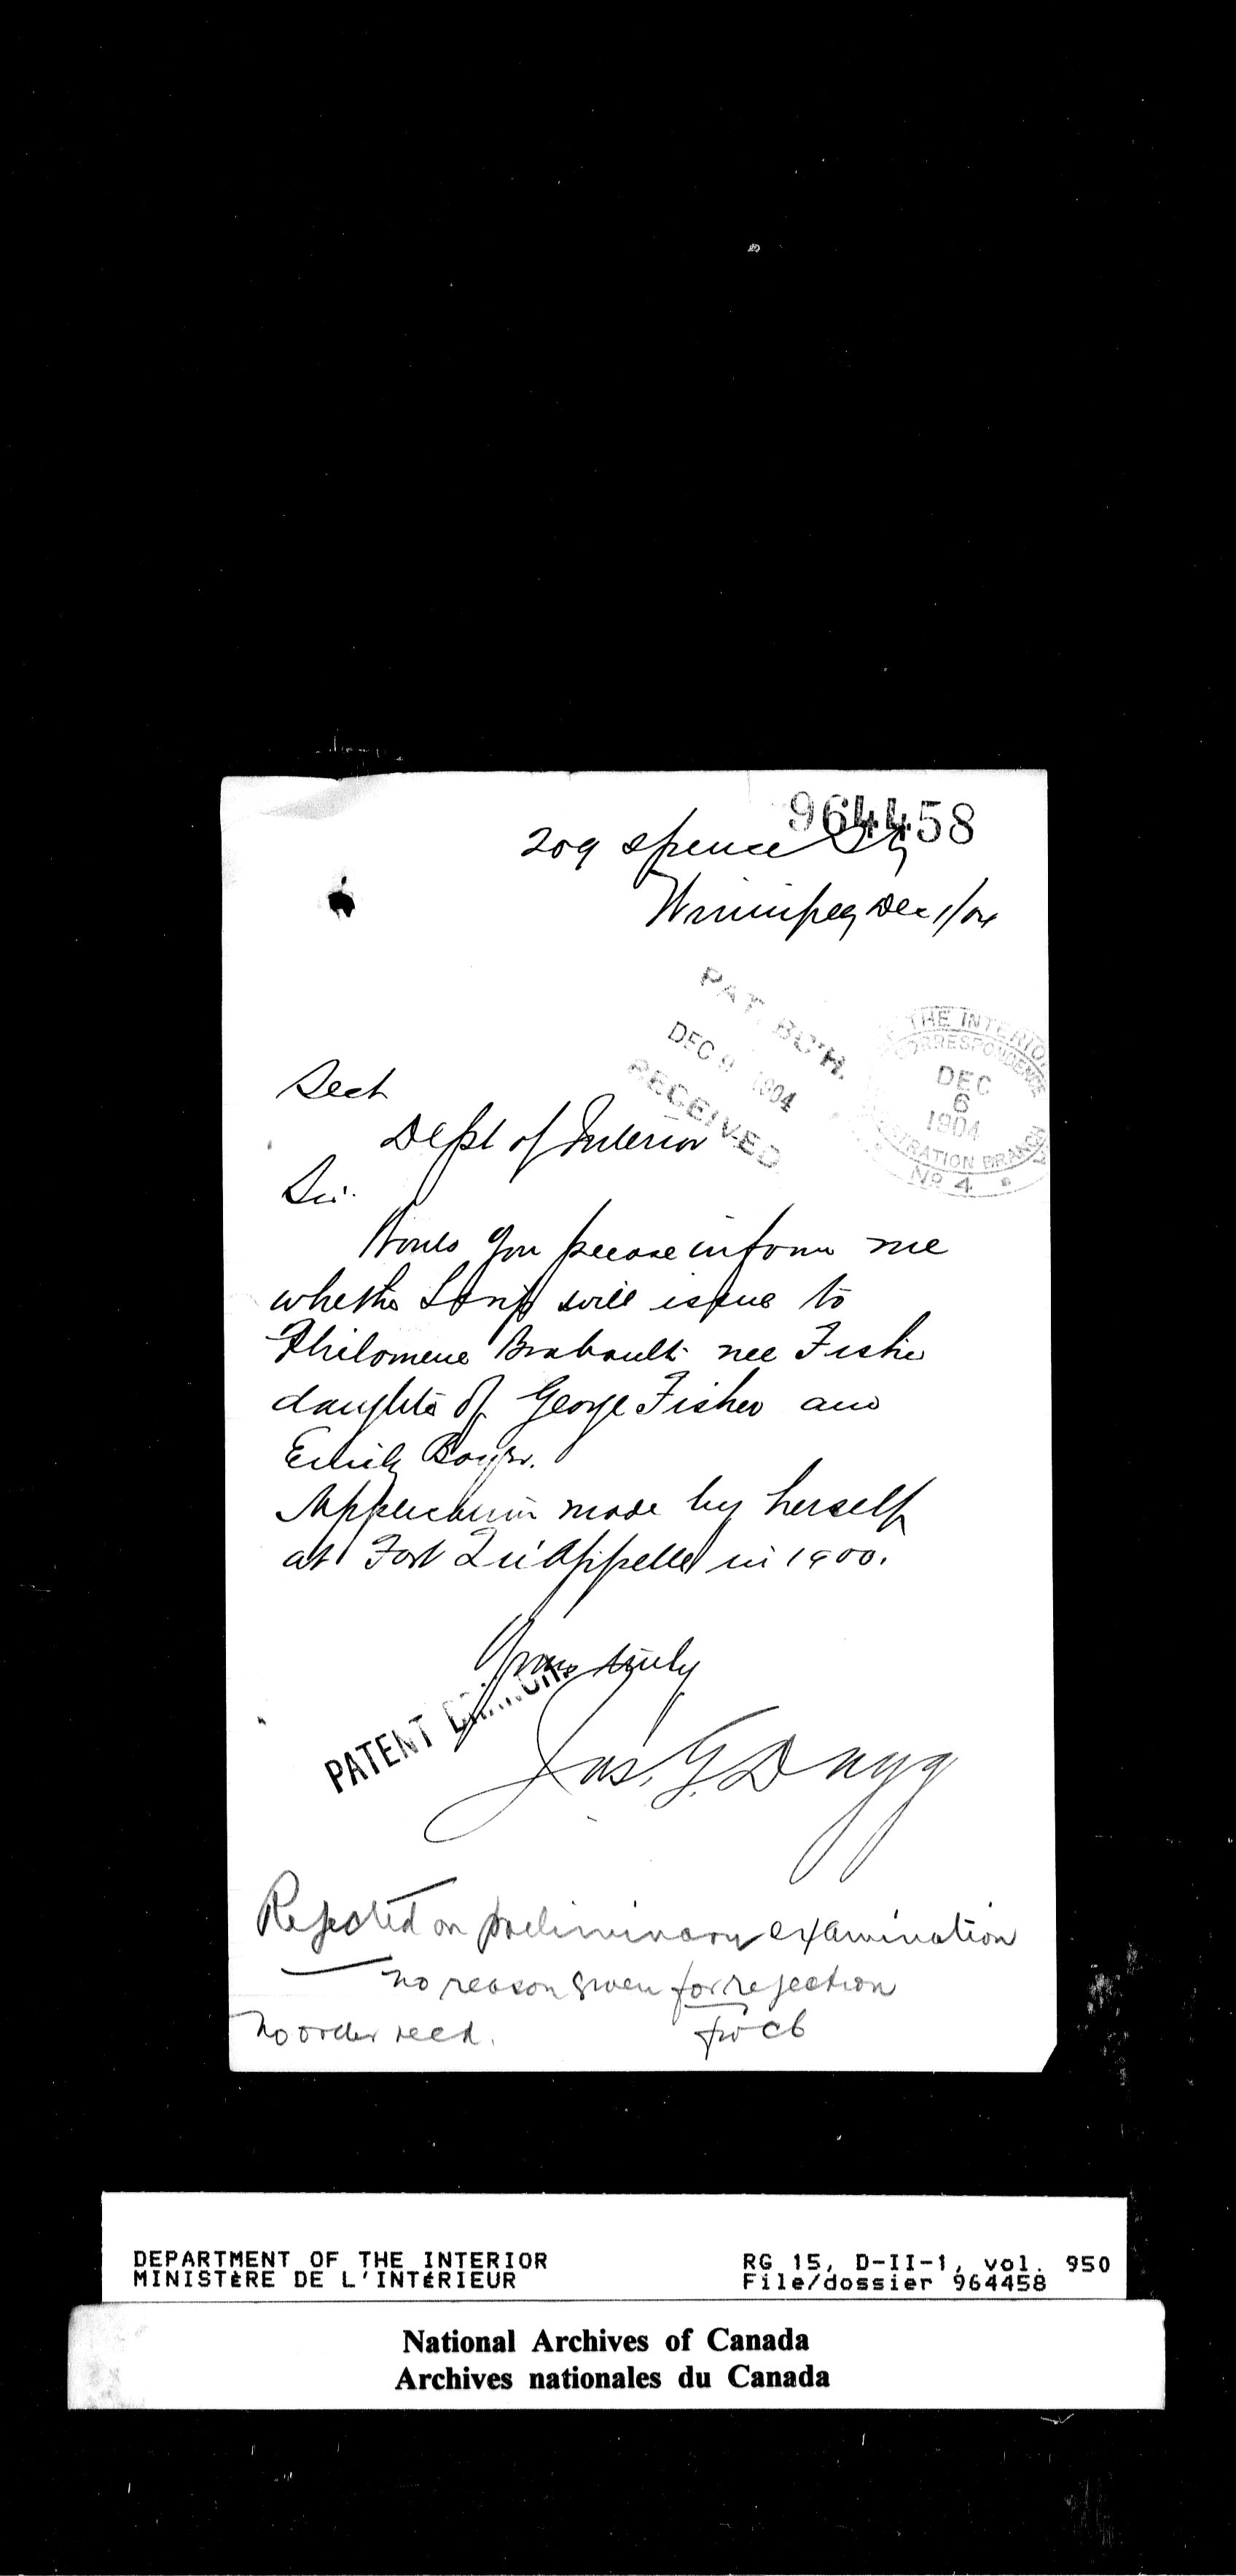 964458
209 Spence St,
Winnipeg Dec 1/04
PAT. BCH.
DEC 9 1904
RECEIVED
THE INTERIOR
CORRESPONDENCE
DEC
6
1904
REGISTRATION BRANCH
No 4
Sect
Dept of Interior
Sir.
Would you please inform me
whether Scrip will issue to
Philomene Brabault nee Fisher
daughter of George Fisher and
Emily Boyer.
Application made by herself
at Fort Qu'Appelle in 1900.
Yours truly
PATENT BRANCH
Jas. G. Dagg
Rejected on preliminary examination
no reason given for rejection
no order recd.
DEPARTMENT OF THE INTERIOR
MINISTÈRE DE L'INTÉRIEUR
RG 15, D-II-1, vol. 950
File/dossier 964458
National Archives of Canada
Archives nationales du Canada